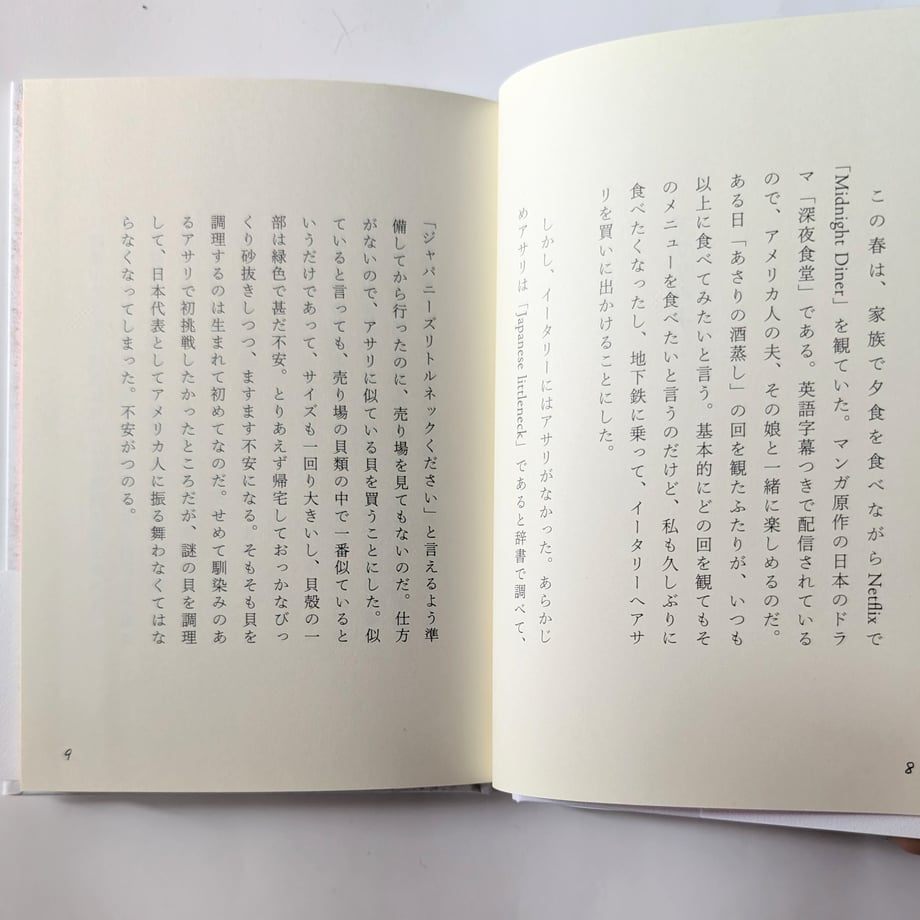 この春は、家族で夕食を食べながらNetflixで
「Midnight Diner」を観ていた。マンガ原作の日本のドラ
マ「深夜食堂」である。英語字幕つきで配信されている
ので、アメリカ人の夫、その娘と一緒に楽しめるのだ。
ある日「あさりの酒蒸し」の回を観たふたりが、いつも
以上に食べてみたいと言う。基本的にどの回を観てもそ
のメニューを食べたいと言うのだけど、私も久しぶりに
食べたくなったし、地下鉄に乗って、イータリーへアサ
リを買いに出かけることにした。
しかし、イータリーにはアサリがなかった。あらかじ
めアサリは「Japanese littleneck」であると辞書で調べて、
8
「ジャパニーズリトルネックください」と言えるよう準
備してから行ったのに、売り場を見てもないのだ。仕方
がないので、アサリに似ている貝を買うことにした。似
ていると言っても、売り場の貝類の中で一番似ていると
いうだけであって、サイズも一回り大きいし、貝殻の一
部は緑色で甚だ不安。とりあえず帰宅しておっかなびっ
くり砂抜きしつつ、ますます不安になる。そもそも貝を
調理するのは生まれて初めてなのだ。せめて馴染みのあ
るアサリで初挑戦したかったところだが、謎の貝を調理
して、日本代表としてアメリカ人に振る舞わなくてはな
らなくなってしまった。不安がつのる。
9